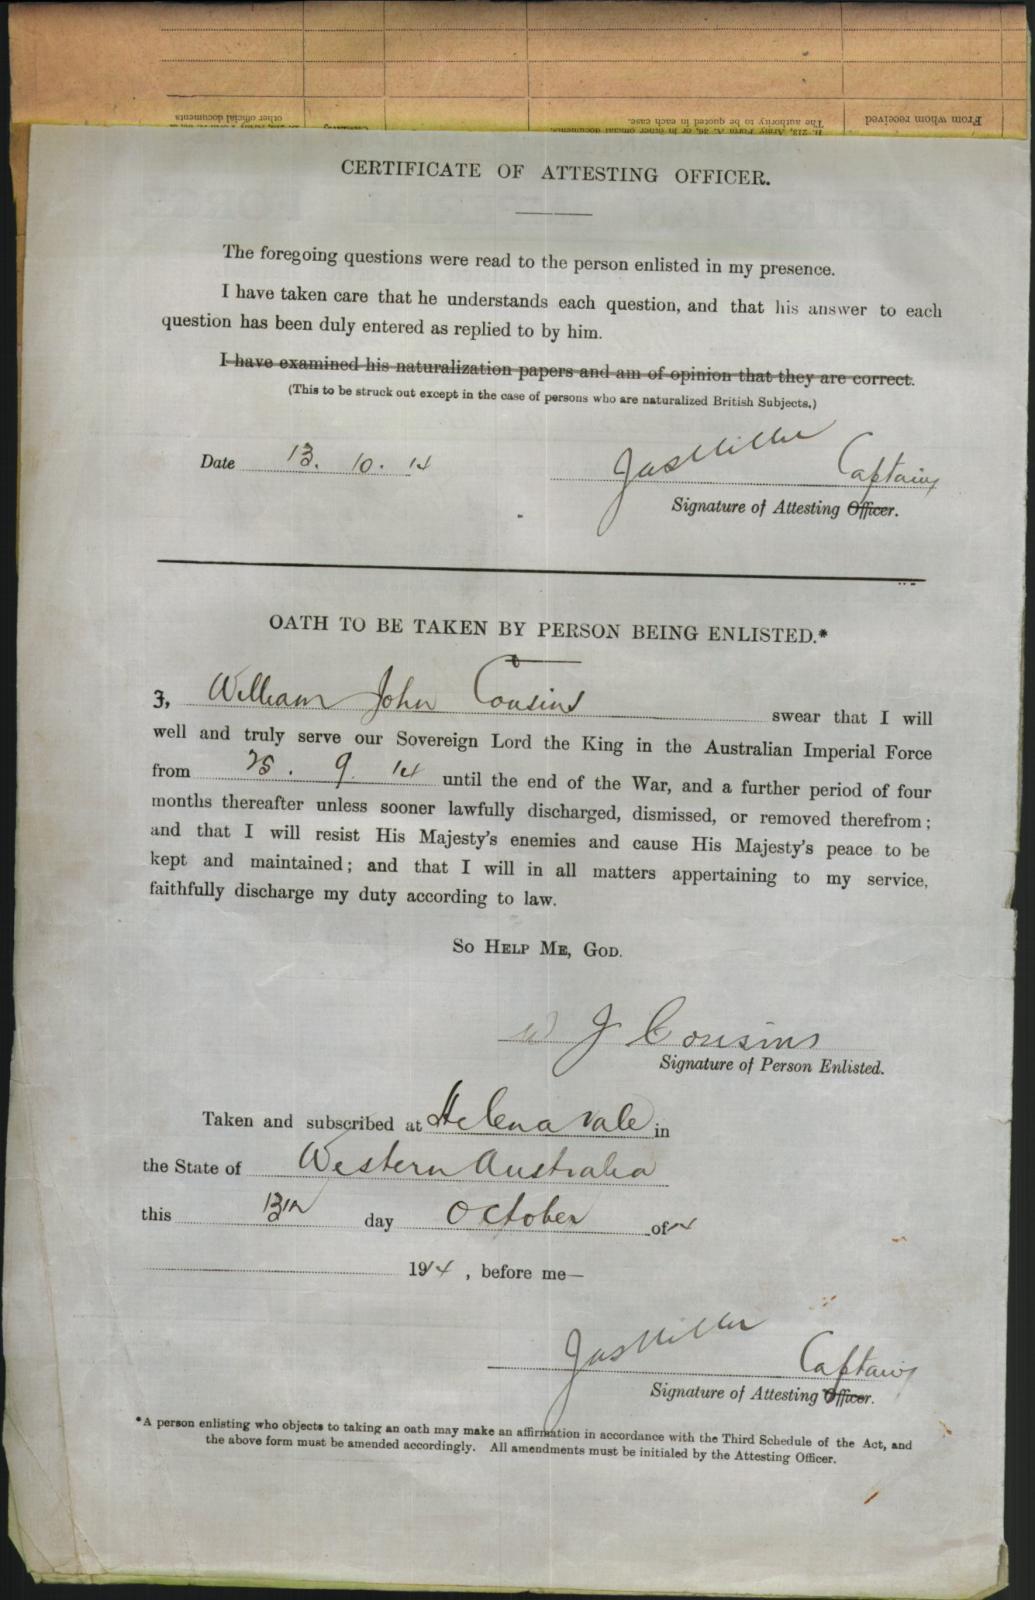 other official documents
The authority to be quoted in each case.
B. 213, Army Form A. 36, or in other official documents.
From whom received
CERTIFICATE OF ATTESTING OFFICER.
The foregoing questions were read to the person enlisted in my presence.
I have taken care that he understands each question, and that his answer to each
question has been duly entered as replied to by him.
I have examined his naturalization papers and am of opinion that they are correct.
(This to be struck out except in the case of persons who are naturalized British Subjects.)
Date 13. 10. 14 Jas Miller Captain
Signature of Attesting Officer.
OATH TO BE TAKEN BY PERSON BEING ENLISTED.*
I, William John Cousins swear that I will
well and truly serve our Sovereign Lord the King in the Australian Imperial Force
from 25. 9. 14 until the end of the War, and a further period of four
months thereafter unless sooner lawfully discharged, dismissed, or removed therefrom;
and that I will resist His Majesty's enemies and cause His Majesty's peace to be
kept and maintained; and that I will in all matters appertaining to my service,
faithfully discharge my duty according to law.
SO HELP ME, GOD.
W J Cousins
Signature of Person Enlisted.
Taken and subscribed at Helena Vale in
the State of Western Australia
this 13th day October of
1914, before me—
Jas Miller Captain
Signature of Attesting Officer.
*A person enlisting who objects to taking an oath may make an affirmation in accordance with the Third Schedule of the Act, and
the above form must be amended accordingly. All amendments must be initialed by the Attesting Officer.